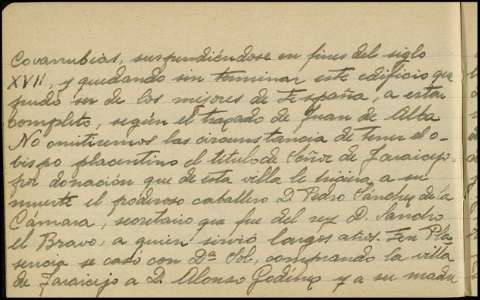 Covarrubias, suspendiéndose en fines del siglo
XVII, y quedando sin terminar este edificio que
pudo ser de los mejores de España, a estar
completo, según el trazado de Juan de Alba
No omitiremos las circunstancia de tener el o-
bispo placentino el título de Señor de Jaraicejo,
por donación que de esta villa le hiciera, a su
muerte el poderoso caballero D. Pedro Sánchez de la
Cámara, secretario que fue del rey D. Sancho
el Bravo, a quien sirvió largos años. En Pla-
sencia se casó con Dª Sol, comprando la villa
de Jaraicejo a D. Alonso Godínez y a su madre